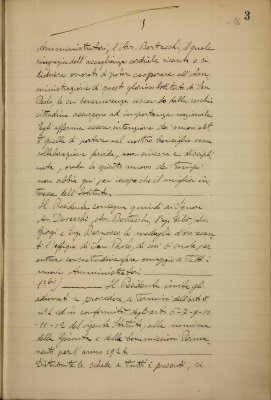 3
Amministratori, l'Avv. Bertacchi, il quale
ringrazia dell'accoglienza cordiale ricevuta e si
dichiara onorato di poter cooperare all'Am-
ministrazione di questo glorioso Istituto di San
Paolo, le cui benemerenze uscendo dalla cerchia
cittadina assurgono ad importanza nazionale.
Egli afferma essere intenzione dei nuovi eletti
quella di portare nel nostro Consiglio una
collaborazione fervida, una sincera e discipli-
nata, onde lo spirito nuovo dei tempi
non abbia qui per scopo che il miglior in-
teresse dell'Istituto.
Il Presidente consegna quindi ai Signori
Avv. Bertacchi, Avv.
e Ing. Bernocco la medaglia d'oro recan-
te l'effigie di San Paolo, di cui si usa per
antica consuetudine fare omaggio a tutti i
nuovi Amministratori.
Il Presidente invita gli
adunati a procedere, a termini dell'art.
ed in conformità degli art. 6-7-9-10-
11-12 del vigente Statuto, alla nomina
della Giunta e delle Commissioni Perma-
nenti per l'anno 1924.
Distribuite le schede a tutti i presenti, si